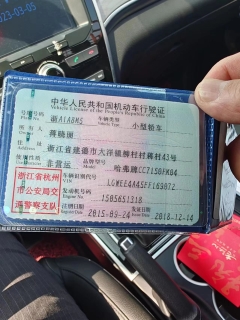 2023-03-05
中华人民共和国机动车行驶证
Vehicle License of the People's Republic of China
号牌号码 浙A1A8M5 车辆类型 小型轿车
Vehicle Type
所有人 蒋晓丽
Owner
住址 浙江省建德市大洋镇柳村村蒋村43号
Address
使用性质 非营运 品牌型号 哈弗牌CC7150FM04
Model
浙江省杭州市公安局交通警察支队
车辆识别代号 LGWEE4A4SFF169072
VIN
发动机号码 1505651318
Engine No.
注册日期 2015-03-24 发证日期 2018-12-14
Register Date Issue Date